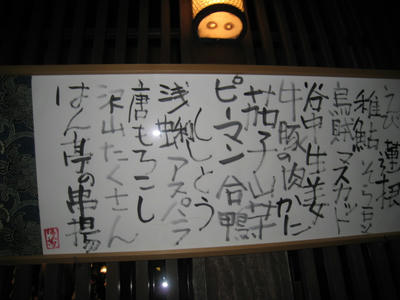 えび 蓮根
稚鮎 そら豆
烏賊 マスカット
谷中生姜
牛豚の肉 かに
茄子 山芋
ピーマン 合鴨
ししとう
浅蜊 アスパラ
唐もろこし
沢山たくさん
はん亭の串揚